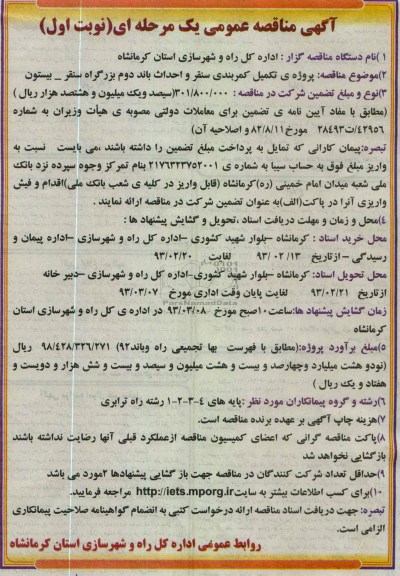 آگهی مناقصه عمومی یک مرحله ای(نوبت اول)
۱)نام دستگاه مناقصه گزار : اداره کل راه و شهرسازی استان کرمانشاه
۲)موضوع مناقصه: پروژه ی تکمیل کمربندی سنقر و احداث باند دوم بزرگراه سنقر _ بیستون
۳)نوع و مبلغ تضمین شرکت در مناقصه : ۳۰۱/۸۰۰/۰۰۰(سیصد ویک میلیون و هشتصد هزار ریال )
(مطابق با مفاد آیین نامه ی تضمین برای معاملات دولتی مصوبه ی هیأت وزیران به شماره
۴۲۹۵۶/ت۲۸۴۹۳ مورخ۸۲/۸/۱۱و اصلاحیه آن)
تبصره:پیمان کارانی که تمایل به پرداخت مبلغ تضمین را داشته باشند ،می بایست نسبت به
واریز مبلغ فوق به حساب سیبا به شماره ی ۲۱۷۶۲۳۷۵۲۰۰۱ بنام تمرکز وجوه سپرده نزد بانک
ملی شعبه میدان امام خمینی (ره)کرمانشاه (قابل واریز در کلیه ی شعب بانک ملی)اقدام و فیش
واریزی آنرا در پاکت(الف)به عنوان تضمین شرکت در مناقصه ارائه نمایند .
۴)محل و زمان و مهلت دریافت اسناد ،تحویل و گشایش پیشنهاد ها :
محل خرید اسناد : کرمانشاه –بلوار شهید کشوری –اداره کل راه و شهرسازی –اداره پیمان و
رسیدگی – ازتاریخ ۹۳/۰۲/۱۳ لغایت ۹۳/۰۲/۲۰
محل تحویل اسناد: کرمانشاه –بلوار شهید کشوری–اداره کل راه و شهرسازی –دبیر خانه
ازتاریخ ۹۳/۰۲/۲۱ لغایت پایان وقت اداری مورخ ۹۳/۰۳/۰۷
ParsNamadData
زمان گشایش پیشنهاد ها:ساعت۱۰صبح مورخ ۹۳/۰۳/۰۸ در اداره ی کل راه و شهرسازی استان
کرمانشاه
۵)مبلغ برآورد پروژه:(مطابق با فهرست بها تجمیعی راه وباند۹۲) ۹۸/۴۲۸/۳۲۶/۲۷۱ ریال
(نودو هشت میلیارد وچهارصد و بیست و هشت میلیون و سیصد و بیست و شش هزار و دویست و
هفتاد و یک ریال )
۶)رشته و گروه پیمانکاران مورد نظر :پایه های ۴-۳-۲-۱ رشته راه ترابری
۷)هزینه چاپ آگهی بر عهده برنده مناقصه است.
۸)پاکت مناقصه گرانی که اعضای کمیسیون مناقصه ازعملکرد قبلی آنها رضایت نداشته باشند
بازگشایی نخواهد شد
۹)حداقل تعداد شرکت کنندگان در مناقصه جهت باز گشایی پیشنهادها ۲مورد می باشد
۱۰)برای کسب اطلاعات بیشتر به سایتhttp://iets.mporg.ir مراجعه فرمایید.
تبصره: جهت دریافت اسناد مناقصه ارائه درخواست کتبی به انضمام گواهینامه صلاحیت پیمانکاری
الزامی است.
روابط عمومی اداره کل راه و شهرسازی استان کرمانشاه